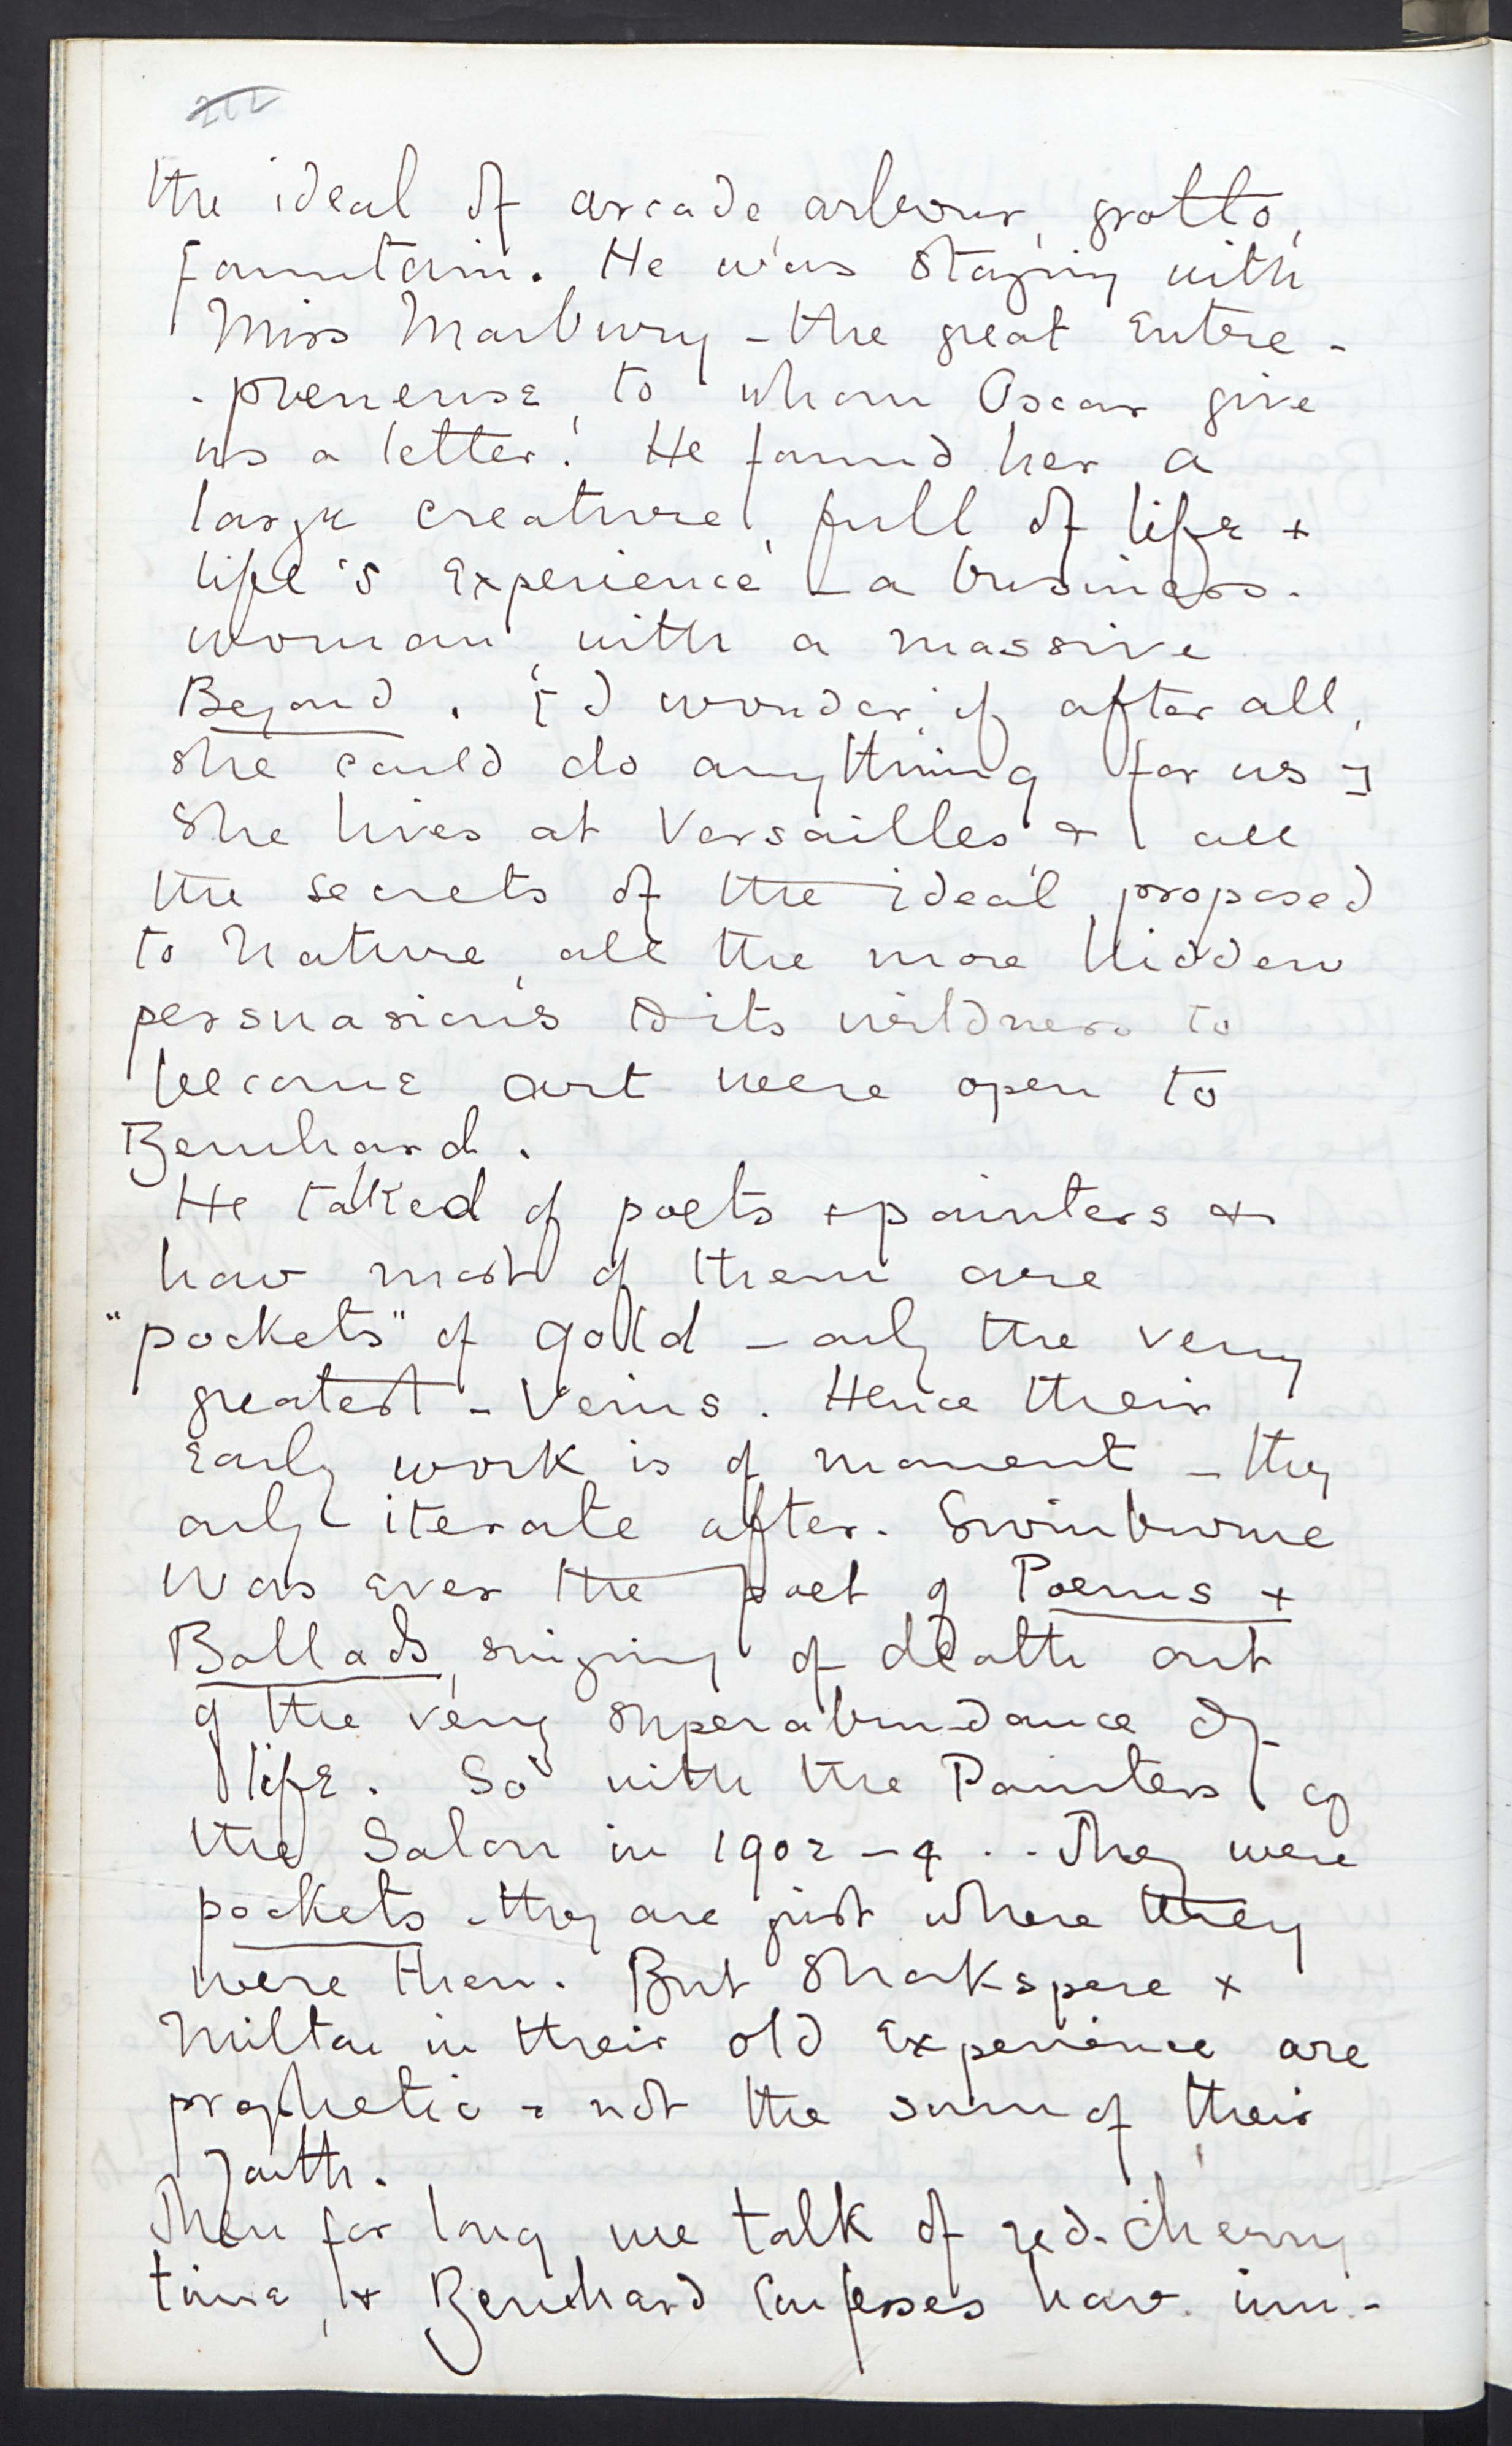 the ideal of arcade, arbour, grotto,
fountain. He was staying with
Miss Marbury - the great Entre-
-preneuse, to whom Oscar give
us a letter. He found her a
large creature, full of life +
life's Experience - a business-
woman, with a massive
Beyond. [I wonder, if after all,
she could do anything for us]
She lives at Versailles & all
the secrets of the ideal, proposed
to Nature, all the more hidden
persuasions to its wildness to
become art were open to
Bernhard.
He talked of poets + painters &
how most of them are
"pockets" of gold - only the very
greatest - Veins. Hence their
Early work is of moment - they
only iterate after. Swinburne
was ever the poet of Poems +
Ballads, singing of death out
of the very superabundance of
life. So with the Painters of
the Salon in 1902-4 .. They were
pockets - they are just where they
were then. But Shakspere +
Milton in their old Experience are
prophetic - not the sum of their
Faith.
Then for long we talk of red-cherry
time, + Bernhard confesses how im-